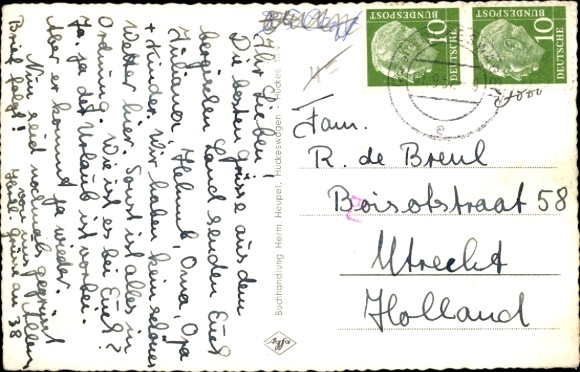 Ihr Lieben!
Die besten Grüsse aus dem
bergischen Land senden Euch
Juliane, Helmut, Oma, Opa
+ Kinder. Wir haben kein schönes
Wetter hier. Sonst ist alles in
Ordnung. Wie ist es bei Euch?
Ja, ja der Urlaub ist vorbei.
Aber er kommt ja wieder.
Nun seid nochmals gegrüsst
Brief folgt! von uns Allen
38
Buchhandlung Herm. Heupel, Hückeswagen
Agfa
DEUTSCHE
BUNDESPOST
10
DEUTSCHE
BUNDESPOST
10
Fam.
R. de Breul
Boisotstraat 58
Utrecht
Holland